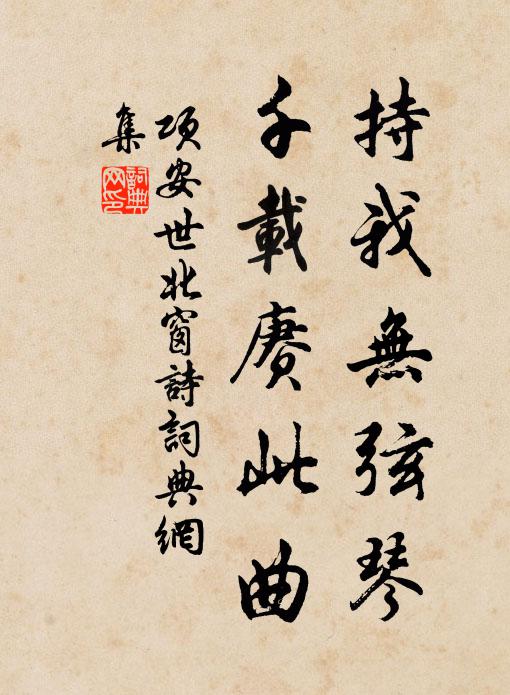 持我無弦琴
千載賡此曲
項安世北窗詩詞典網
集
詞典
网印